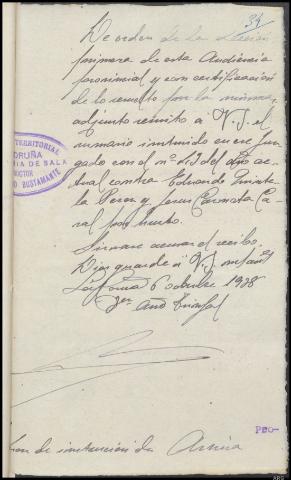 34
De orden de la Sección
primera de esta Audiencia
provincial y con certificación
de lo resuelto por la misma,
adjunto remito a V.S. el
sumario instruido en ese Juz-
gado con el nº 213 del año ac-
tual contra Eduardo
Perez y Jesus Ca-
ral por hurto.
Sirvase acusar el recibo.
Dios guarde a V.S. m. añs
La Coruña 6 octubre 1938
3er Año Triunfal
TERRITORIAL
CORUÑA
DE SALA
DOCTOR
BUSTAMANTE
de instrucción de Arzúa